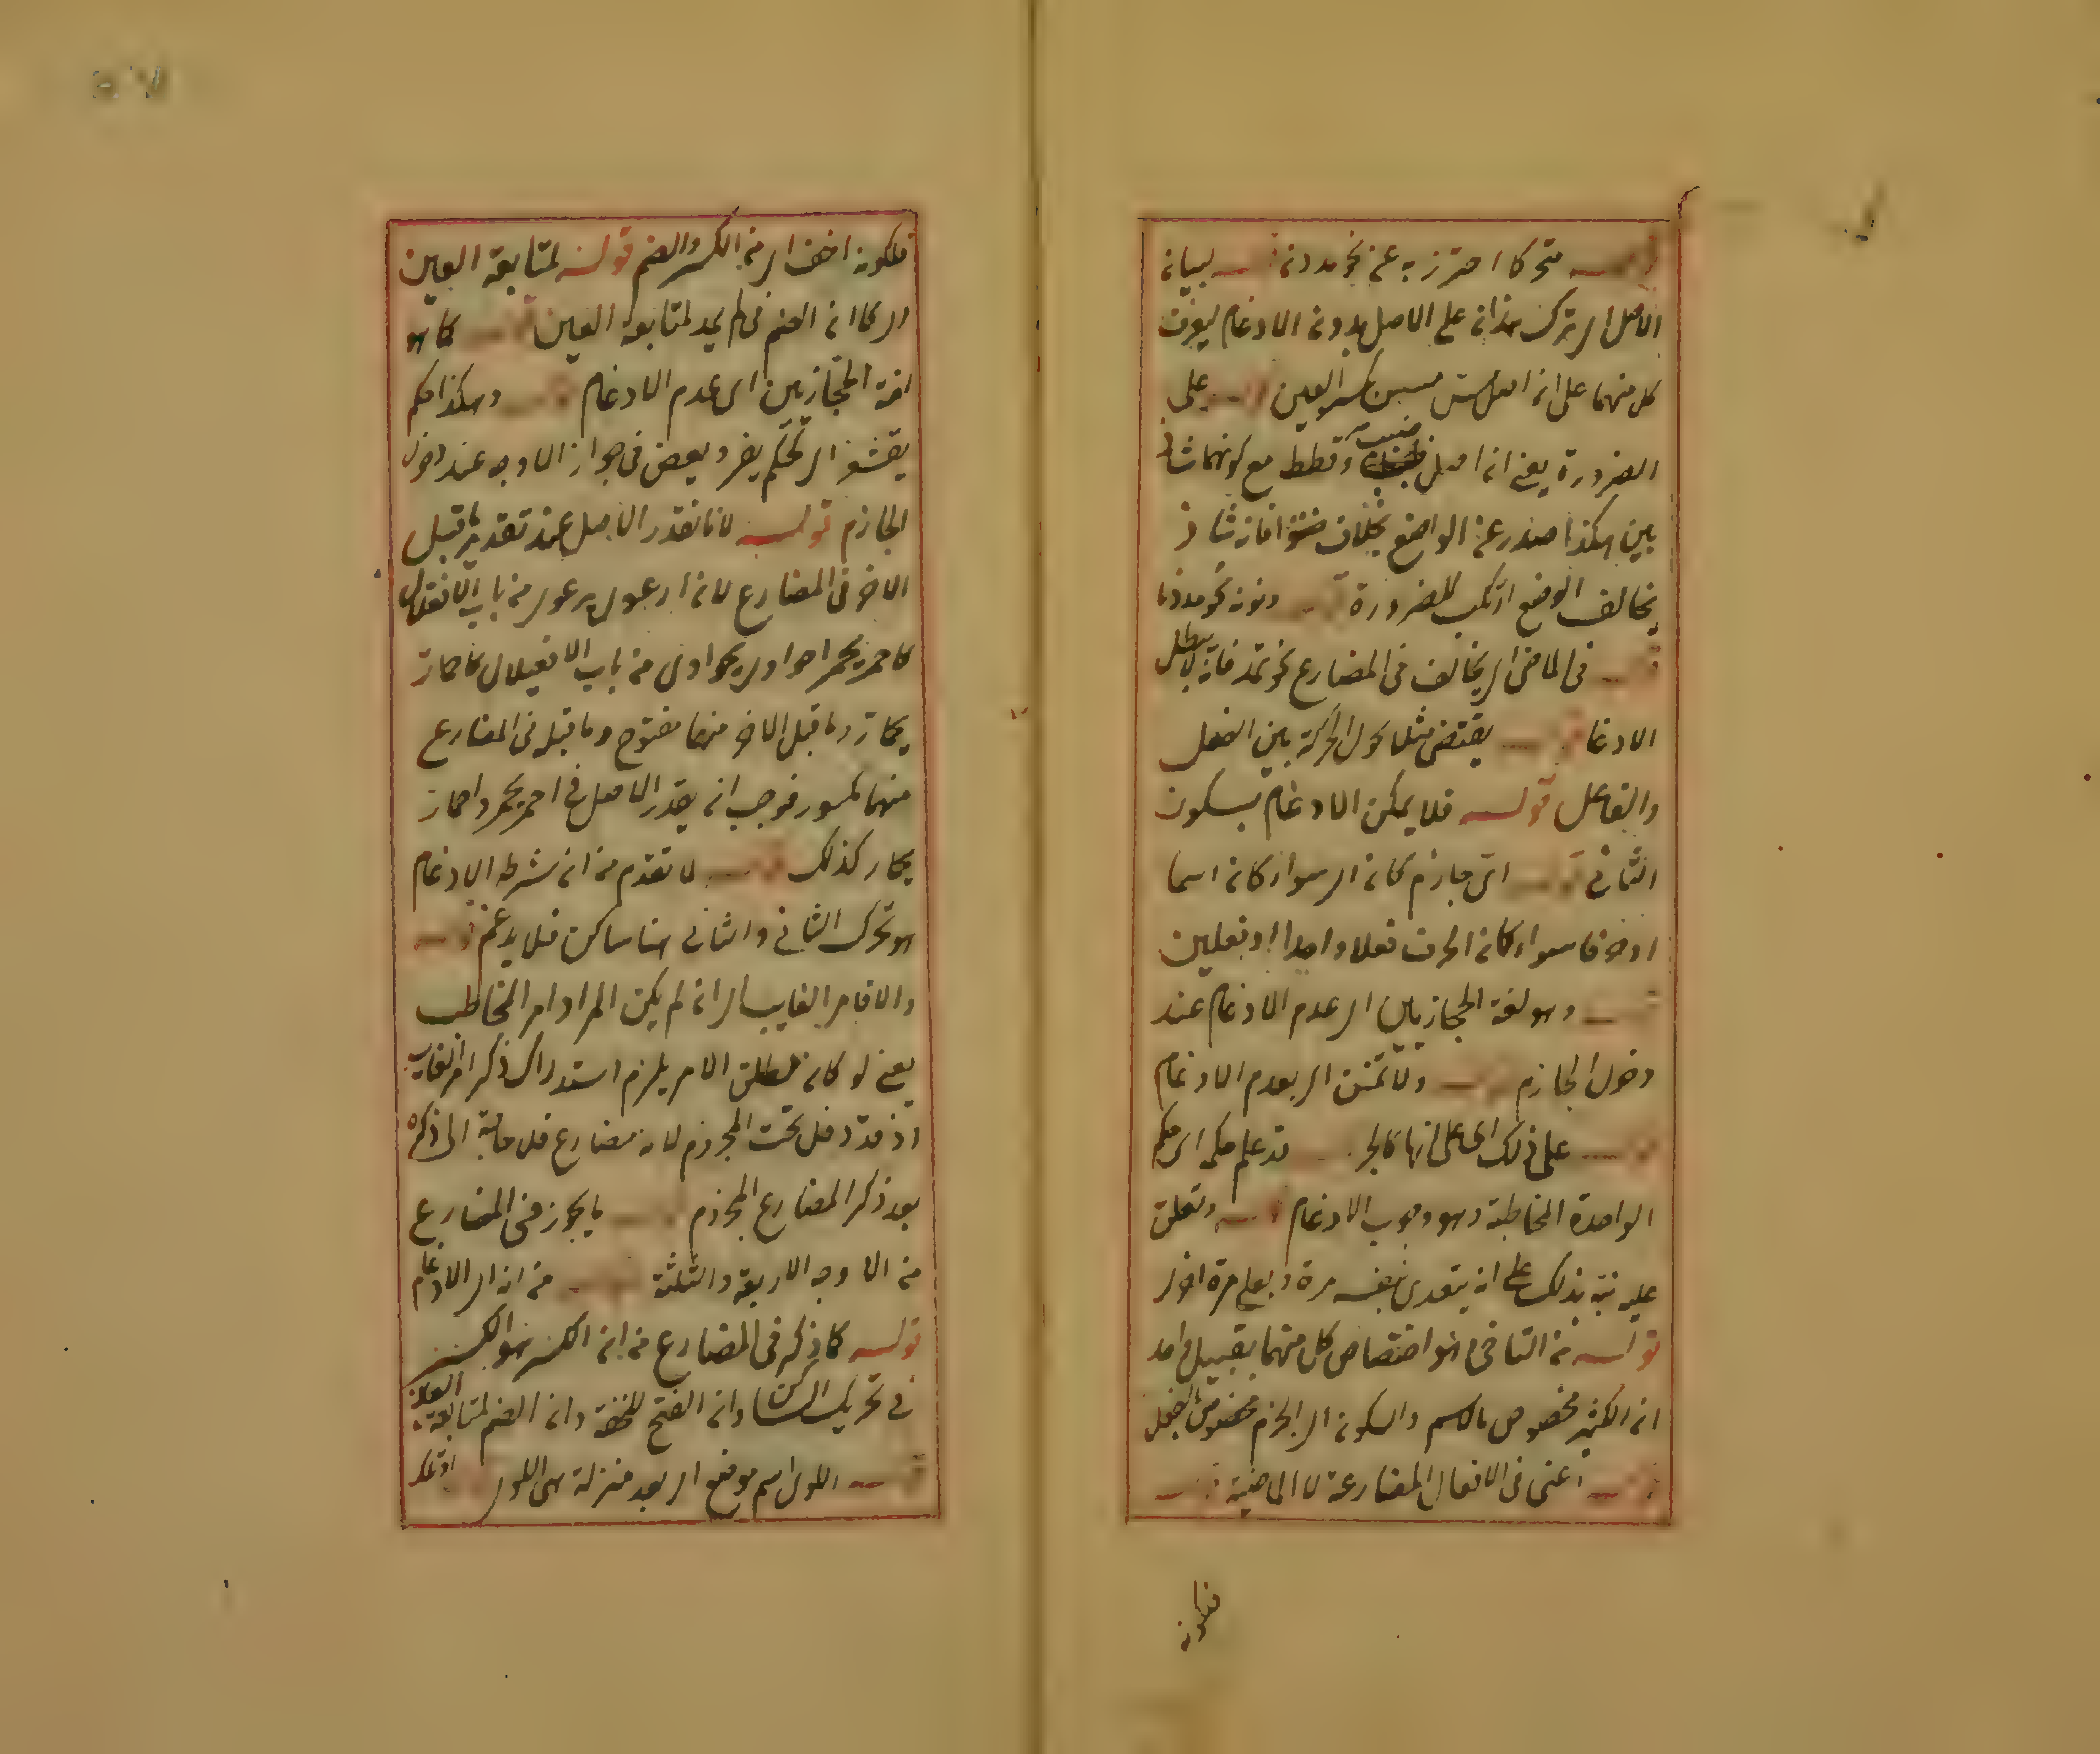 قوله متحركا احترز به عن نحو مددن قوله لبيان
الاصل اى ترك هذان على الاصل بدون الادغام ليعرف
كل منهما على ان اصل مس مسس بكسر العين قوله على
الضرورة يعنى ان اصل ضبب وقطط مع كونهما شاذ
بين هكذا صدر عن الواضع بخلاف ضننوا فانه شاذ
يخالف الوضع ارتكب للضرورة قوله ونون نحو مددنا
قوله فى الماضى اى بخالف فى المضارع نحو تمد فانه لا يبطل
الادغا قوله يقتضى مثلا تحول الحركة بين الفعل
والفاعل قوله فلا يمكن الادغام بسكون
الثانى قوله اى جازم كان اى سواء كان اسما
او حرفا سواء كان الحرف فعلا واحدا او فعلين
قوله وهو لغة الحجازيين اى عدم الادغام عند
دخول الجازم قوله ولا تمنن اى بعدم الادغام
قوله على ذلك اى على انها كالجر قد علم حكمه اى حكم
الواحدة المخاطبة وهو وجوب الادغام قوله وتعلق
عليه نبه بذلك على ان يتعدى بنفسه مرة وبعلى مرة اخرى
قوله من التاخى هو اختصاص كل منهما بقبيل واحد
ان الكسر مخصوص بالاسم والسكون اى الجزم مخصوص بالفعل
قوله اعنى فى الافعال المضارعة لا الماضية قوله
فلكونه
فلكونه اخف اى من الكسر والضم قوله لمتابعة العين
اى كما ان الضم فى لم يمد لمتابعة العين قوله كما هو
لغة الحجازيين اى عدم الادغام قوله وهكذا حكم
يقشعر اى حكم يفر ويعض فى جواز الاوجه عند دخول
الجازم قوله لانا نقدر الاصل عند تقدير ما قبل
الاخر فى المضارع لان ارعوى يرعوى من باب الافعلال
كاحمر يحمر احواوى يحواوى من باب الافعيلال كاحمار
يحمار وما قبل الاخر منهما مفتوح وما قبله فى المضارع
منهما مكسور فوجب ان يقدر الاصل فى احمر يحمر واحمار
يحمار كذلك قوله لما تقدم من ان شرط الادغام
هو تحرك الثانى والثانى هنا ساكن فلا يدغم قوله
والا فامر الغايب اى ان لم يكن المراد امر المخاطب
يعنى لو كان مطلق الامر يلزم استدراك ذكر امر الغايب
اذ قد دخل تحت المجزوم لانه مضارع فلا حاجة الى ذكره
بعد ذكر المضارع المجزوم قوله ما يجوز فى المضارع
من الاوجه الاربعة والثلثة قوله من ان اى الادغام
قوله كما ذكر فى المضارع من ان الكسر هو الكسر
فى تحريك الساكن وان الفتح للخفة وان الضم لمتابعة العين
قوله اللوى اسم موضع اى بعد منزلة هى اللوى اوتلك